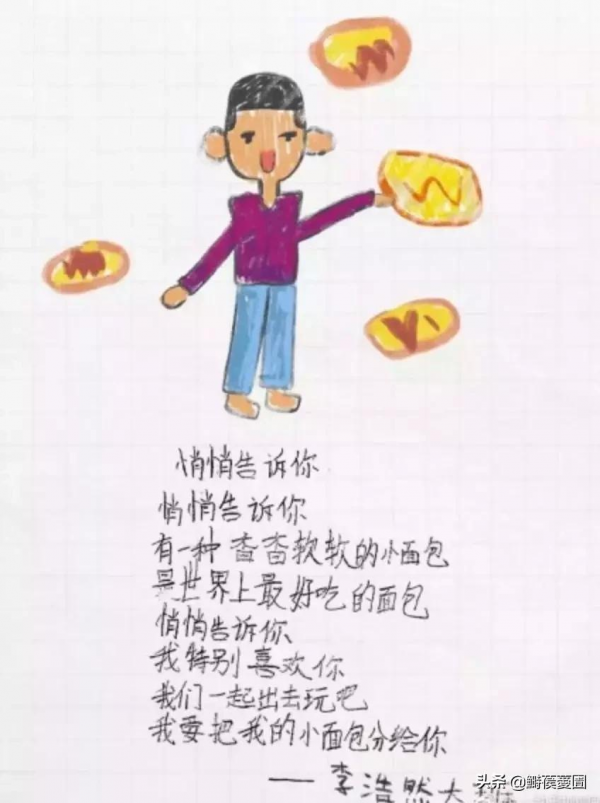 悄悄告诉你
悄悄告诉你
有一种香香软软的小面包
是世界上最好吃的面包
悄悄告诉你
我特别喜欢你
我们一起出去玩吧
我要把我的小面包分给你
——李浩然大班
头条